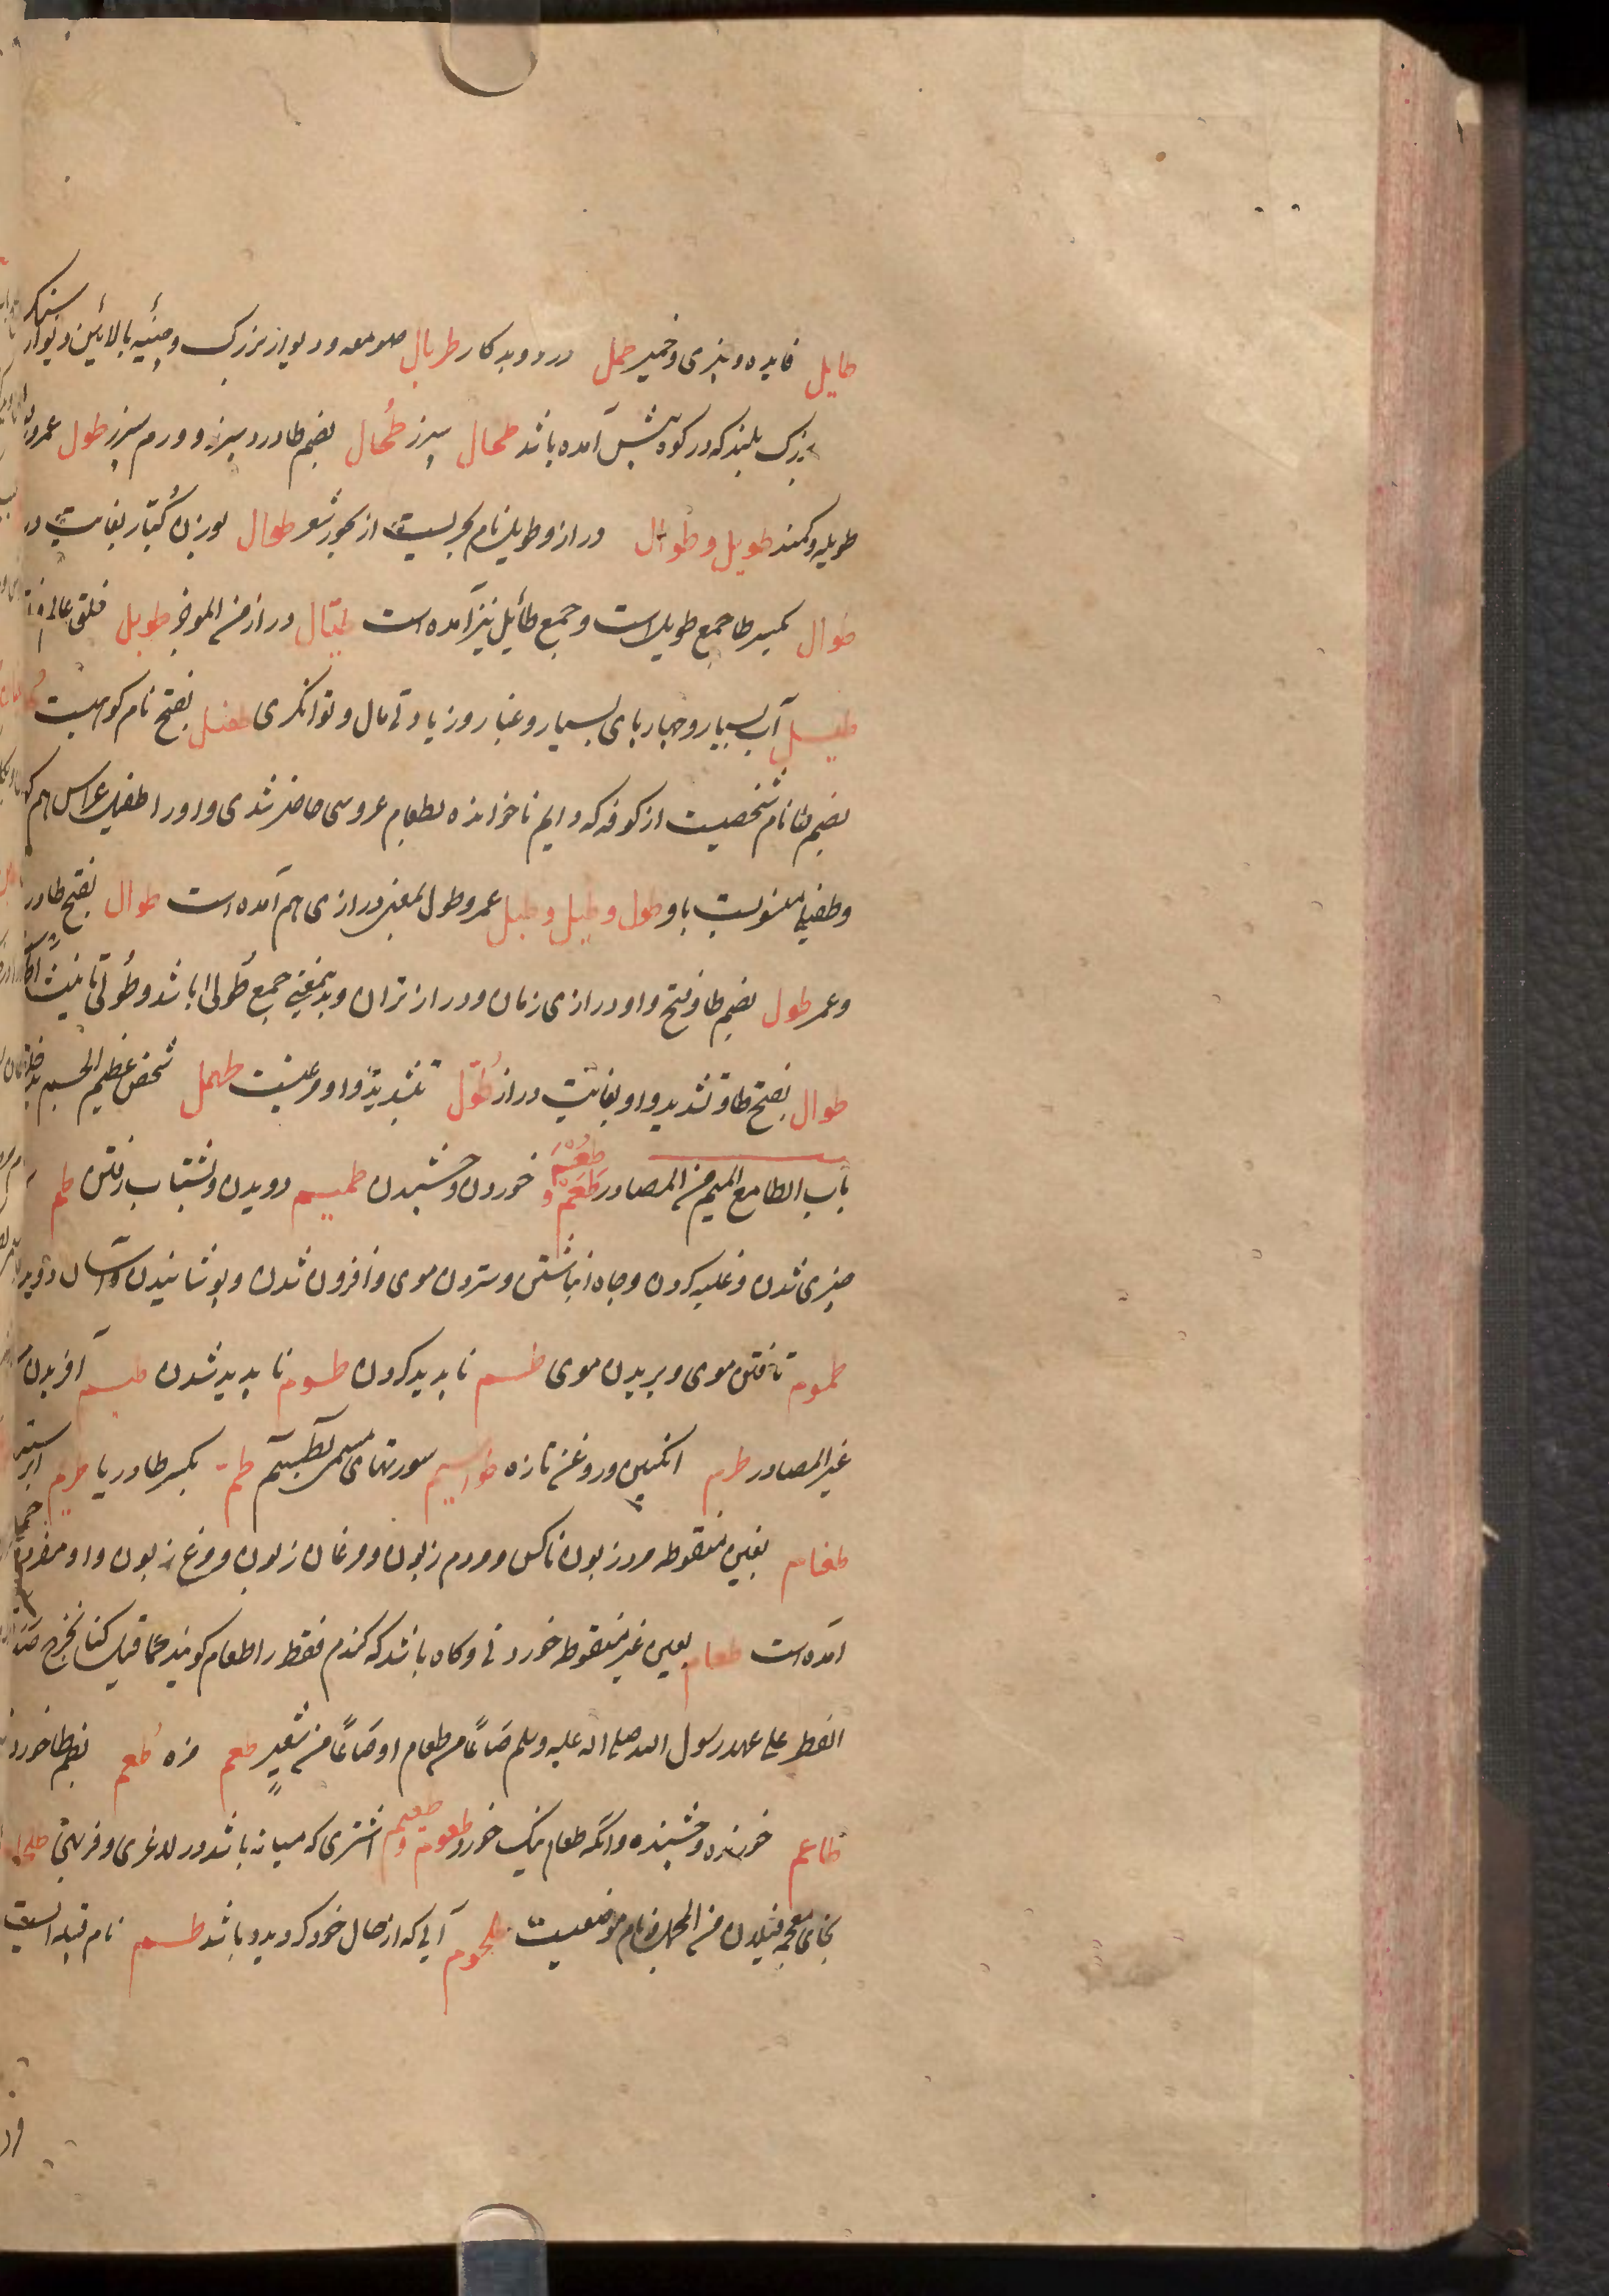 طایل فایده و چیزی و خمیر طمل درد و بدکار طربال صومعه و دیوار بزرگ و چینهٔ بالائین دیوار
بزرگ بلند که در کوه پیش آمده باشد طحال سپرز طُحال بضم طا درد سپرز و ورم سپرز طول عمر
طویله و کمند طویل و طوال دراز و طویل نام بحریست از بحور شعر طوال بوزن کُبّار بغایت
طوال بکسر طا جمع طویل است و جمع طائل نیز آمده است دراز من الموفر
طیسل آب بسیار و بسیار و غبار و زیادتی مال و توانگری طفیل بفتح نام کوهیست
بضم طا نام شخصیست از کوفه که دایم ناخوانده بطعام عروسی حاضر شدی و او را طفیل عرایس هم
و طفیلی منسوبست باو طول و طیل و طیل عمر و طول بمعنی درازی هم آمده است طوال بفتح طا
و عمر طول بضم طا و فتح واو درازی زمان و دراز تران و بدینمعنی جمع طُولی باشد و طُولی تانیث
طوال بفتح طا و تشدید واو بغایت دراز طُوّل بتشدید واو مرغیست طهمل شخص عظیم الجسم
باب الطا مع المیم من المصادر طَعْم و طُعْم خوردن و چشیدن طمیم دویدن و بشتاب رفتن طم
چیزی شدن و غلبه کردن و چاه انباشتن و ستردن موی و افزون شدن و پوشانیدن و آسان
طموم تافتن موی و بریدن موی طسم ناپدید کردن طسوم ناپدید شدن آفریدن
غیر المصادر طرم انگبین و روغن تازه طواسیم سورتهای مسمی بطسم طم بکسر طا دریا طریم
طغام بغین منقوطه مرد زبون ناکس و مردم زبون و مرغان زبون و مرغ زبون و او مفرد
آمده است طعام بعین غیر منقوطه خوردنی و گاه باشد که گندم فقط را طعام گویند کما قیل کنا نخرج
الفطر علی عهد رسول الله صلی الله علیه وسلم صاعًا من طعام او صاعًا من شعیرٍ طعم مزه طُعم بضم طا
طاعم خورنده و چشنده و آنکه طعام نیک خورد طعوم و طعیم اشتری که میانه باشد در لاغری و فربهی
بخای معجمه فیلان من المجمل و نام موضعیست طلحوم آبی که از حال خود گردیده باشد طسم نام قبیله ایست